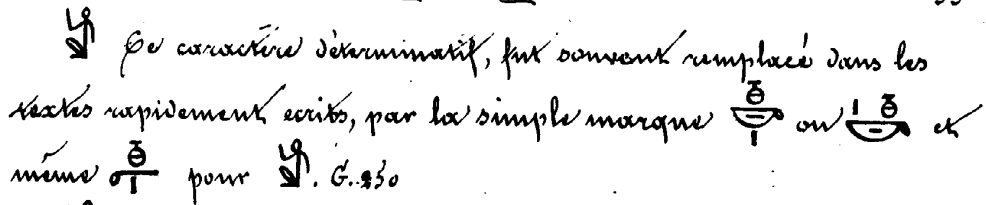 Ce caractère déterminatif, fut souvent remplacé dans les
textes rapidement ecrits, par la simple marque ou et
même pour . G. 250